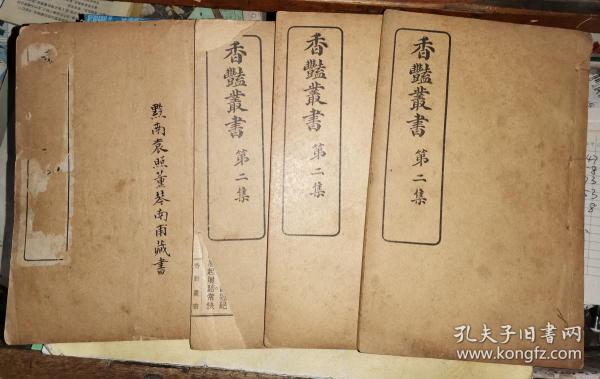 香豔叢書
第二集
香豔叢書
第二集
香豔叢書
第二集
黔南袁照藳琴南甫藏書
香豔叢書
孔夫子旧书网
www.kongfz.com